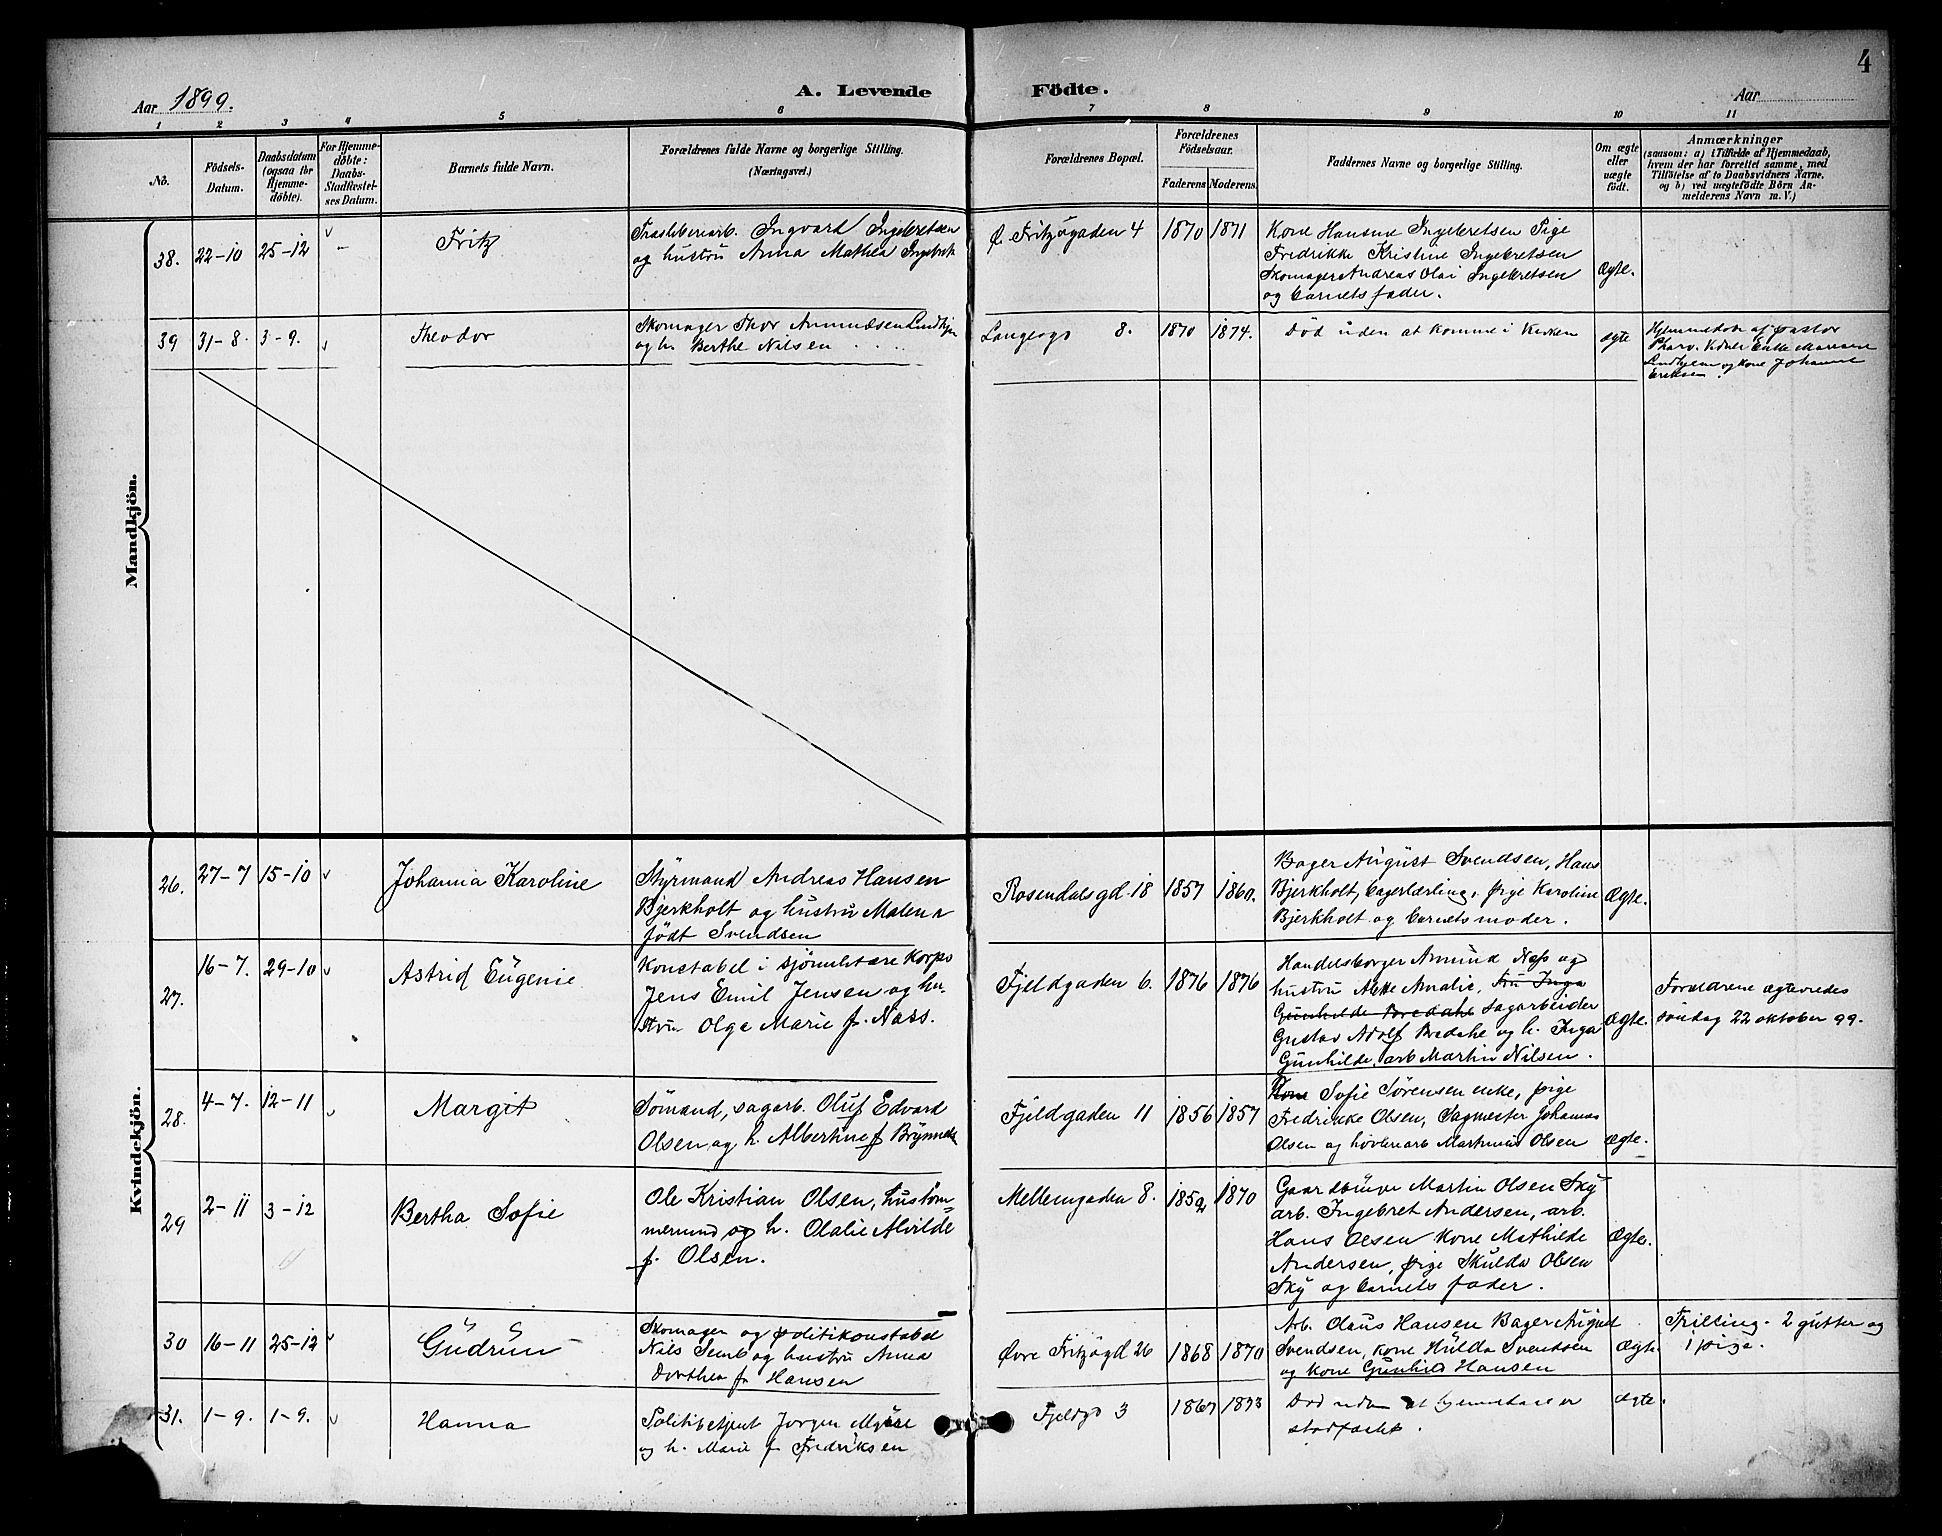 4
Aar 1899.
A. Levende
Födte.
Aar
1 2 3 4 5 6 7 8 9 10 11
No.
Födsels-
Datum.
Daabsdatum
(ogsaa for
Hjemme-
døbte).
For Hjemme-
døbte:
Daabs-
Stadfæstel-
ses Datum.
Barnets fulde Navn.
Forældrenes fulde Navne og borgerlige Stilling.
(Næringsvei.)
Forældrenes Bopæl.
Forældrenes
Födselsaar.
Faderens. Moderens.
Faddernes Navne og borgerlige Stilling.
Om ægte
eller
uægte
født.
Anmærkninger
(saasom: a) i Tilfælde af Hjemmedaab,
hvem der har forrettet samme, med
Tilföielse af to Daabsvidners Navne,
og b) ved uægtefödte Börn An-
melderens Navn m. V.)
Mandkjön.
38. 22-10 25-12 –
Fritz
Ingvard Ingebretsen
og hustru Anna Mathea
Ø. Fritzøgaden 4 1870 1871
Kone Hansine Ingebretsen Pige
Fredrikke Kristine Ingebretsen
Skomager Andreas Olai Ingebretsen
og barnets fader.
Ægte.
39 31-8. 3-9.
Theodor
Skomager Thor
og h. Berthe Nilsen
8. 1870 1874.
Död uden at komme i Kirken
ægte
Hjemmedøbt af pastor
Enke
Lindhjem og kone Johanne
Kvindekjön.
26. 27-7 15-10
Johanna Karoline
Styrmand Andreas Hansen
Bjerkholt og hustru Malena
födt Svendsen
Rosendalsgd. 18 1857 1860.
Bager August Svendsen, Hans
Bjerkholt, bagerlærling, pige Karoline
Bjerkholt og barnets moder.
Ægte.
27. 16-7. 29-10
Astrid Eugenie
Konstabel i sjömilitære Korps
Jens Emil Jensen og hu-
stru Olga Marie f. Næss.
Fjeldgaden 6. 1876 1876
Handelsborger Amund Næss og
hustru Amalie, Fru Inga
Gunhilde Bredahl sagarbeider
Gustav Adolf Bredahl og h. Inga
Gunhilde, arb Martin Nilsen.
Ægte.
Forældrene ægteviedes
söndag 22 oktober 99.
28. 4-7. 12-11
Margit
Sömand, sagarb. Oluf Edvard
Olsen og h. Albertine f.
Fjeldgaden 11 1856 1857
Kone Sofie Sörensen enke, pige
Fredrikke Olsen, Sagmester Johannes
Olsen og hövleriarb Martinius Olsen
Ægte.
29 2-11 3-12
Bertha Sofie
Ole Kristian Olsen, hustöm-
mermand og h. Olalie Alvilde
f. Olsen.
Mellemgaden 8. 1859 1870
Gaardbruger Martin Olsen Sky
arb. Ingebret Andersen, arb.
Hans Olsen Kone Mathilde
Andersen, pige Skulda Olsen
Sky og barnets fader.
Ægte.
30 16-11 25-12
Gudrun
Skomager og politikonstabel
Nils Semb og hustru Anna
Dorthea f. Hansen
Øvre Fritzøgd 26 1868 1870
Arb. Olaus Hansen Bager August
Svendsen, kone Hulda Svendsen
og kone Gunhild Hansen
Ægte
Trilling. 2 gutter og
1 pige.
31. 1-9. 1-9.
Hanna
Politibetjent Jørgen
og h. Marie f. Fredriksen
Fjeldgd 3 1867 1873
Död uden at hjemmedaab er
stadfæstet.
ægte.